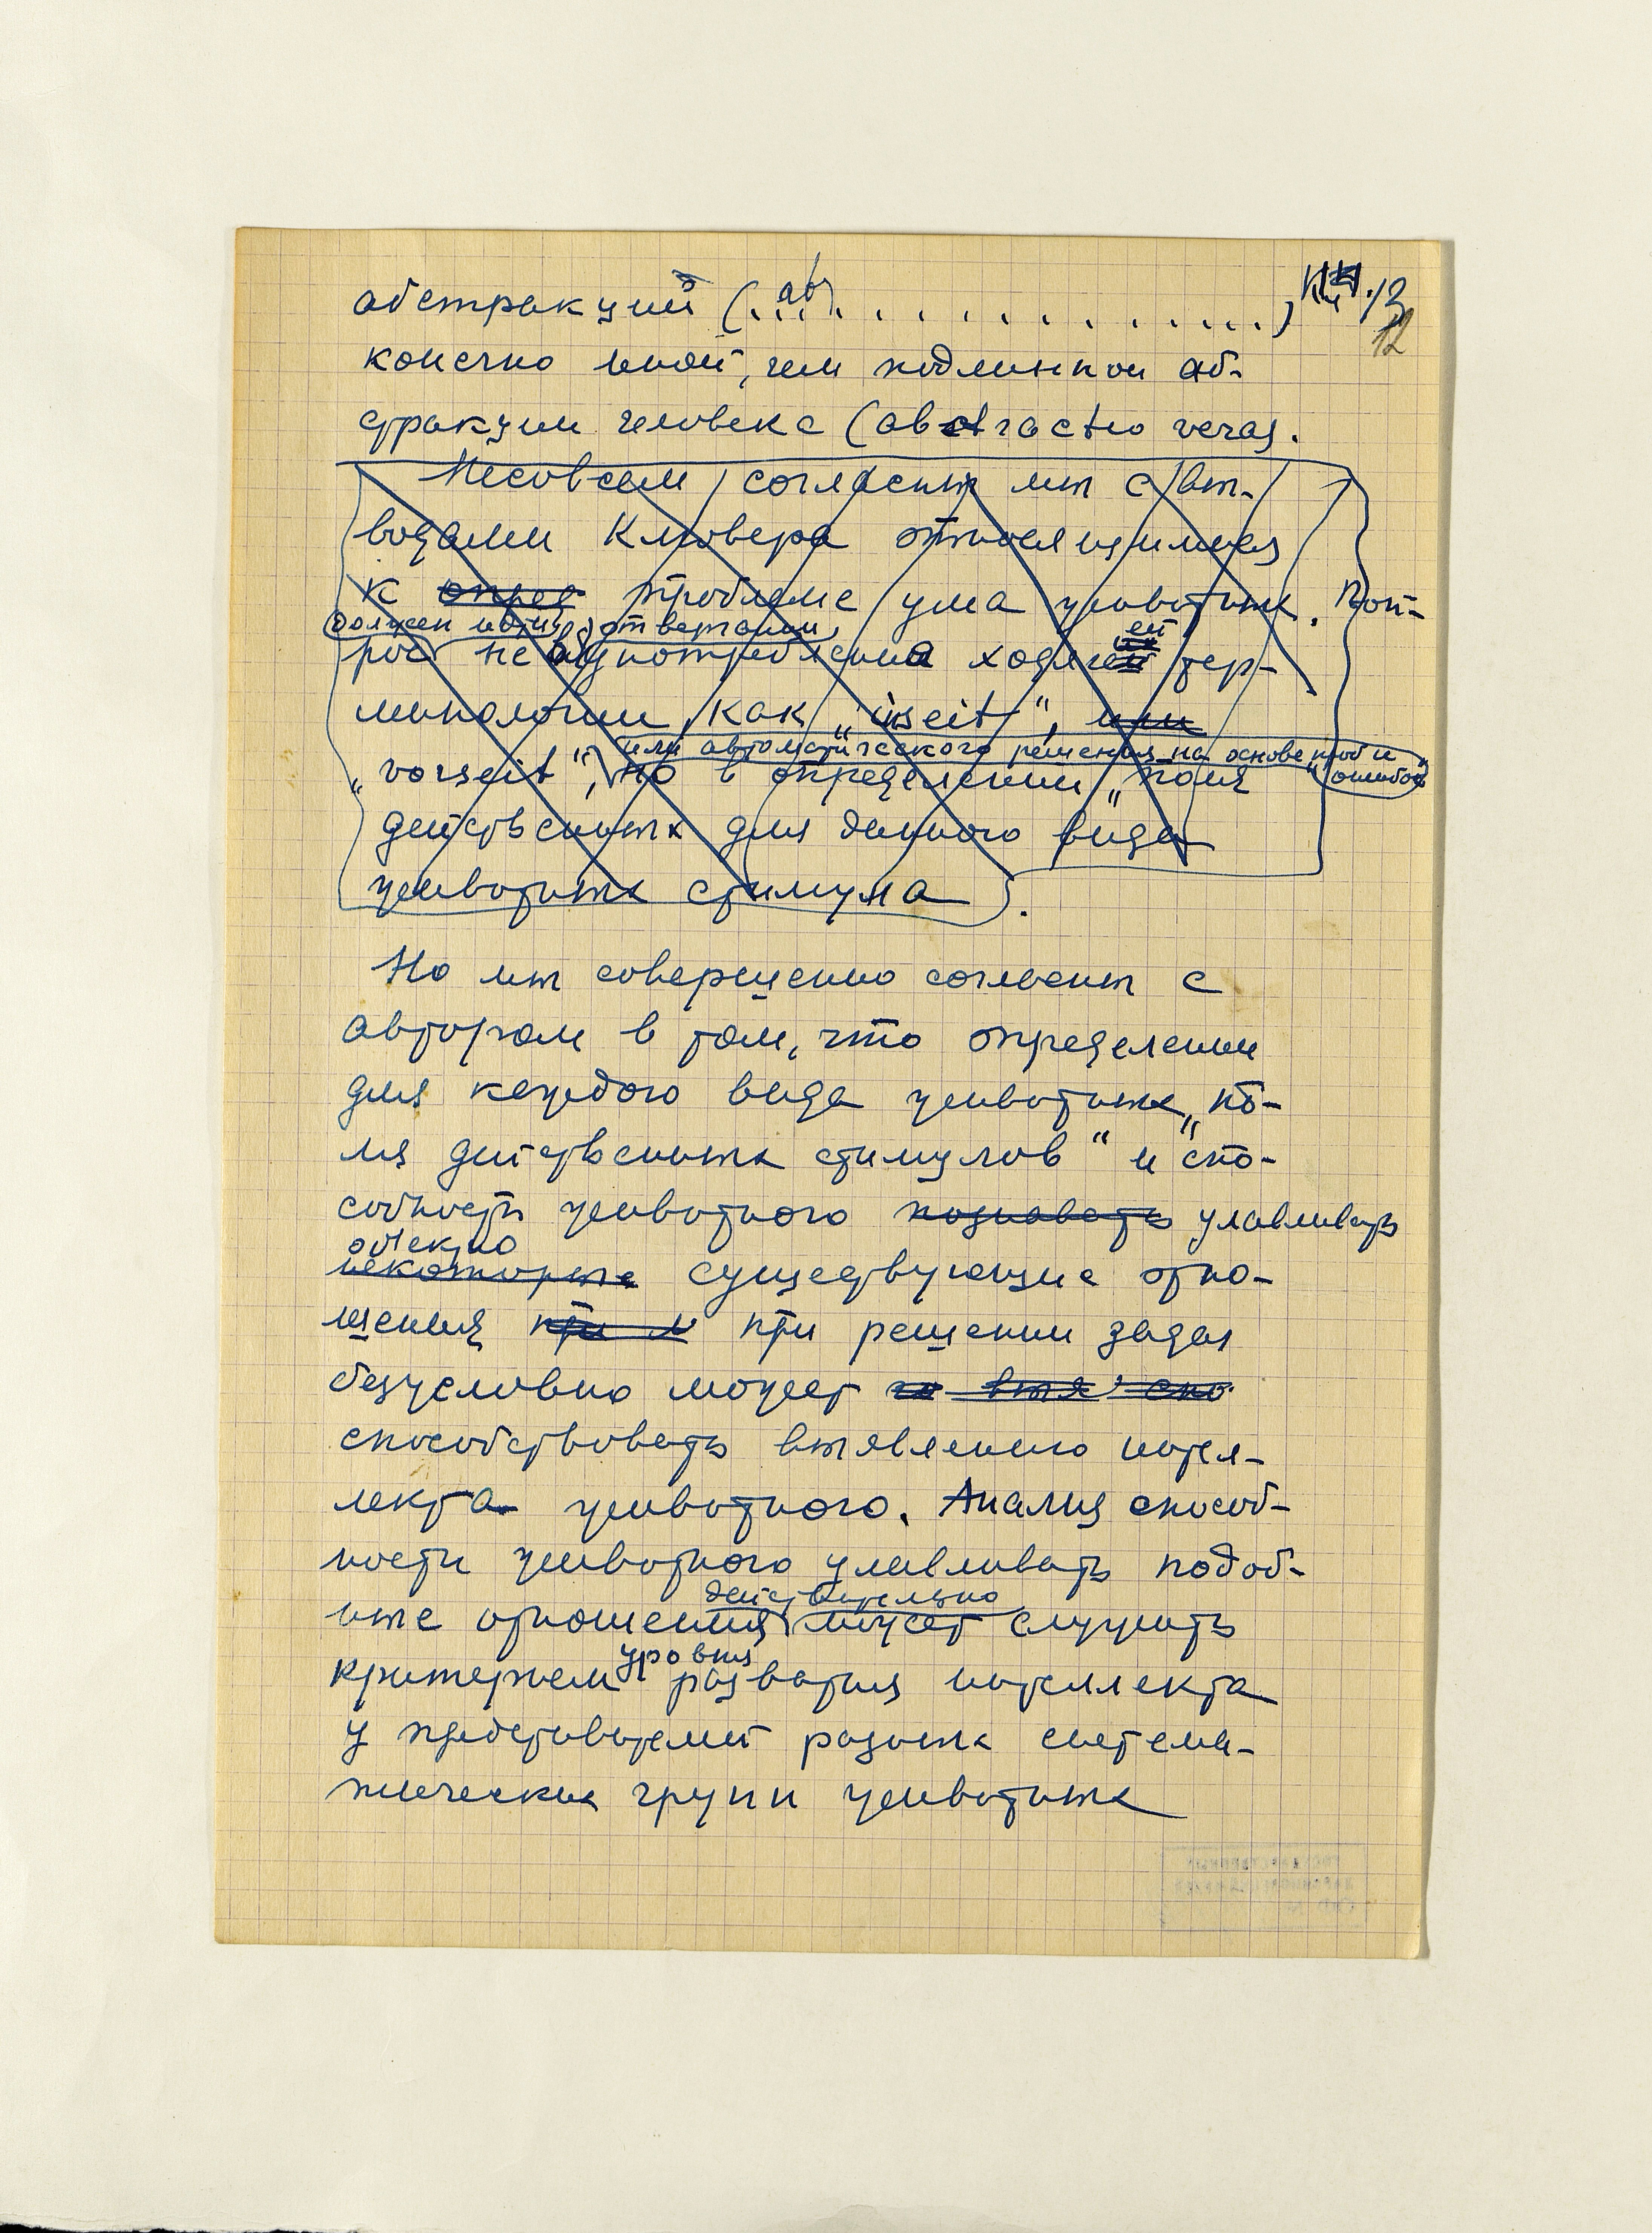 абстракций (...ab...............)
12
конечно иной, чем подлинной аб-
стракции человека (abstractio vera).
Несовсем согласны мы с вы-
водами Клювера относящимися
к опред проблеме ума животных. Воп-
должен идти, об отвергании,
рос не в употреблении ходячей тер-
минологии, как „inseit“, или
или автоматического решения на основе „проб и ошибок“
„vorseit“, но в определении „поля
действенных для данного вида
животных стимула.
Но мы совершенно согласны с
автором в том, что определении
для каждого вида животных „по-
ля действенных стимулов“ и спо-
собность животного познавать улавливать
объектно
некоторые существующие отно-
шения при и при решении задач
безусловно может выя спо
способствовать выявлению интел-
лекта животного. Анализ способ-
ности животного улавливать подоб-
действительно
ные отношения может служить
уровня
критерием развития интеллекта
у представителей разных система-
тических групп животных